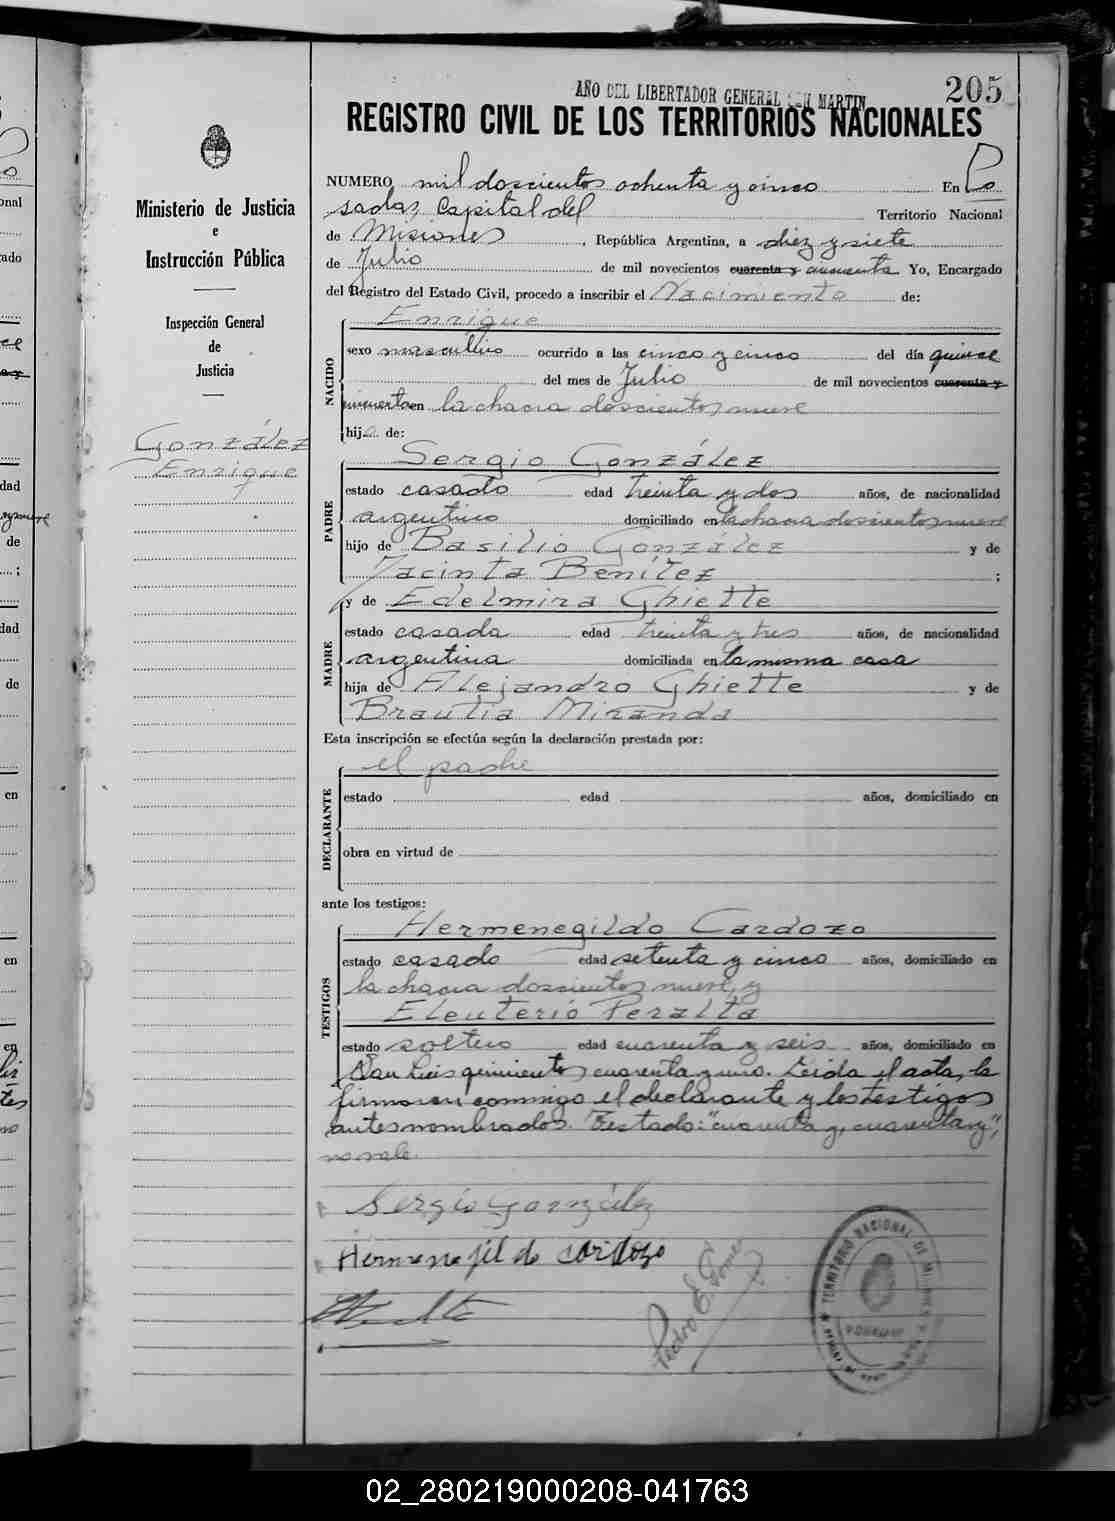 AÑO DEL LIBERTADOR GENERAL SAN MARTIN
205
REGISTRO CIVIL DE LOS TERRITORIOS NACIONALES
Ministerio de Justicia
e
Instrucción Pública
Inspección General
de
Justicia
González
Enrique
NUMERO mil doscientos ochenta y cinco En Po
sadas, Capital del Territorio Nacional
de Misiones, República Argentina, a diez y siete
de Julio de mil novecientos cuarenta y cincuenta. Yo, Encargado
del Registro del Estado Civil, procedo a inscribir el Nacimiento de:
NACIDO
Enrique
sexo masculino ocurrido a las cinco y cinco del día quince
del mes de Julio de mil novecientos cuarenta y
cincuenta en la chacra doscientos nueve
hijo de:
PADRE
Sergio González
estado casado edad treinta y dos años, de nacionalidad
argentino domiciliado en la chacra doscientos nueve
hijo de Basilio González y de
Jacinta Benítez ;
MADRE
y de Edelmira Ghiette
estado casada edad treinta y tres años, de nacionalidad
argentina domiciliada en la misma casa
hija de Alejandro Ghiette y de
Brautia Miranda
Esta inscripción se efectúa según la declaración prestada por:
DECLARANTE
el padre
estado edad años, domiciliado en
obra en virtud de
ante los testigos:
TESTIGOS
Hermenegildo Cardozo
estado casado edad setenta y cinco años, domiciliado en
la chacra doscientos nueve, y
Eleuterio Peralta
estado soltero edad cuarenta y seis años, domiciliado en
San Luis quinientos cuarenta y uno. Leida el acta, la
firmaron conmigo el declarante y los testigos
antes nombrados. Testado: "cuarenta y, cuarenta y",
no vale.
Sergio González
Hermenejildo cardozo
Pedro E. Gomez
TERRITORIO NACIONAL DE MISIONES
POSADAS
02_280219000208-041763